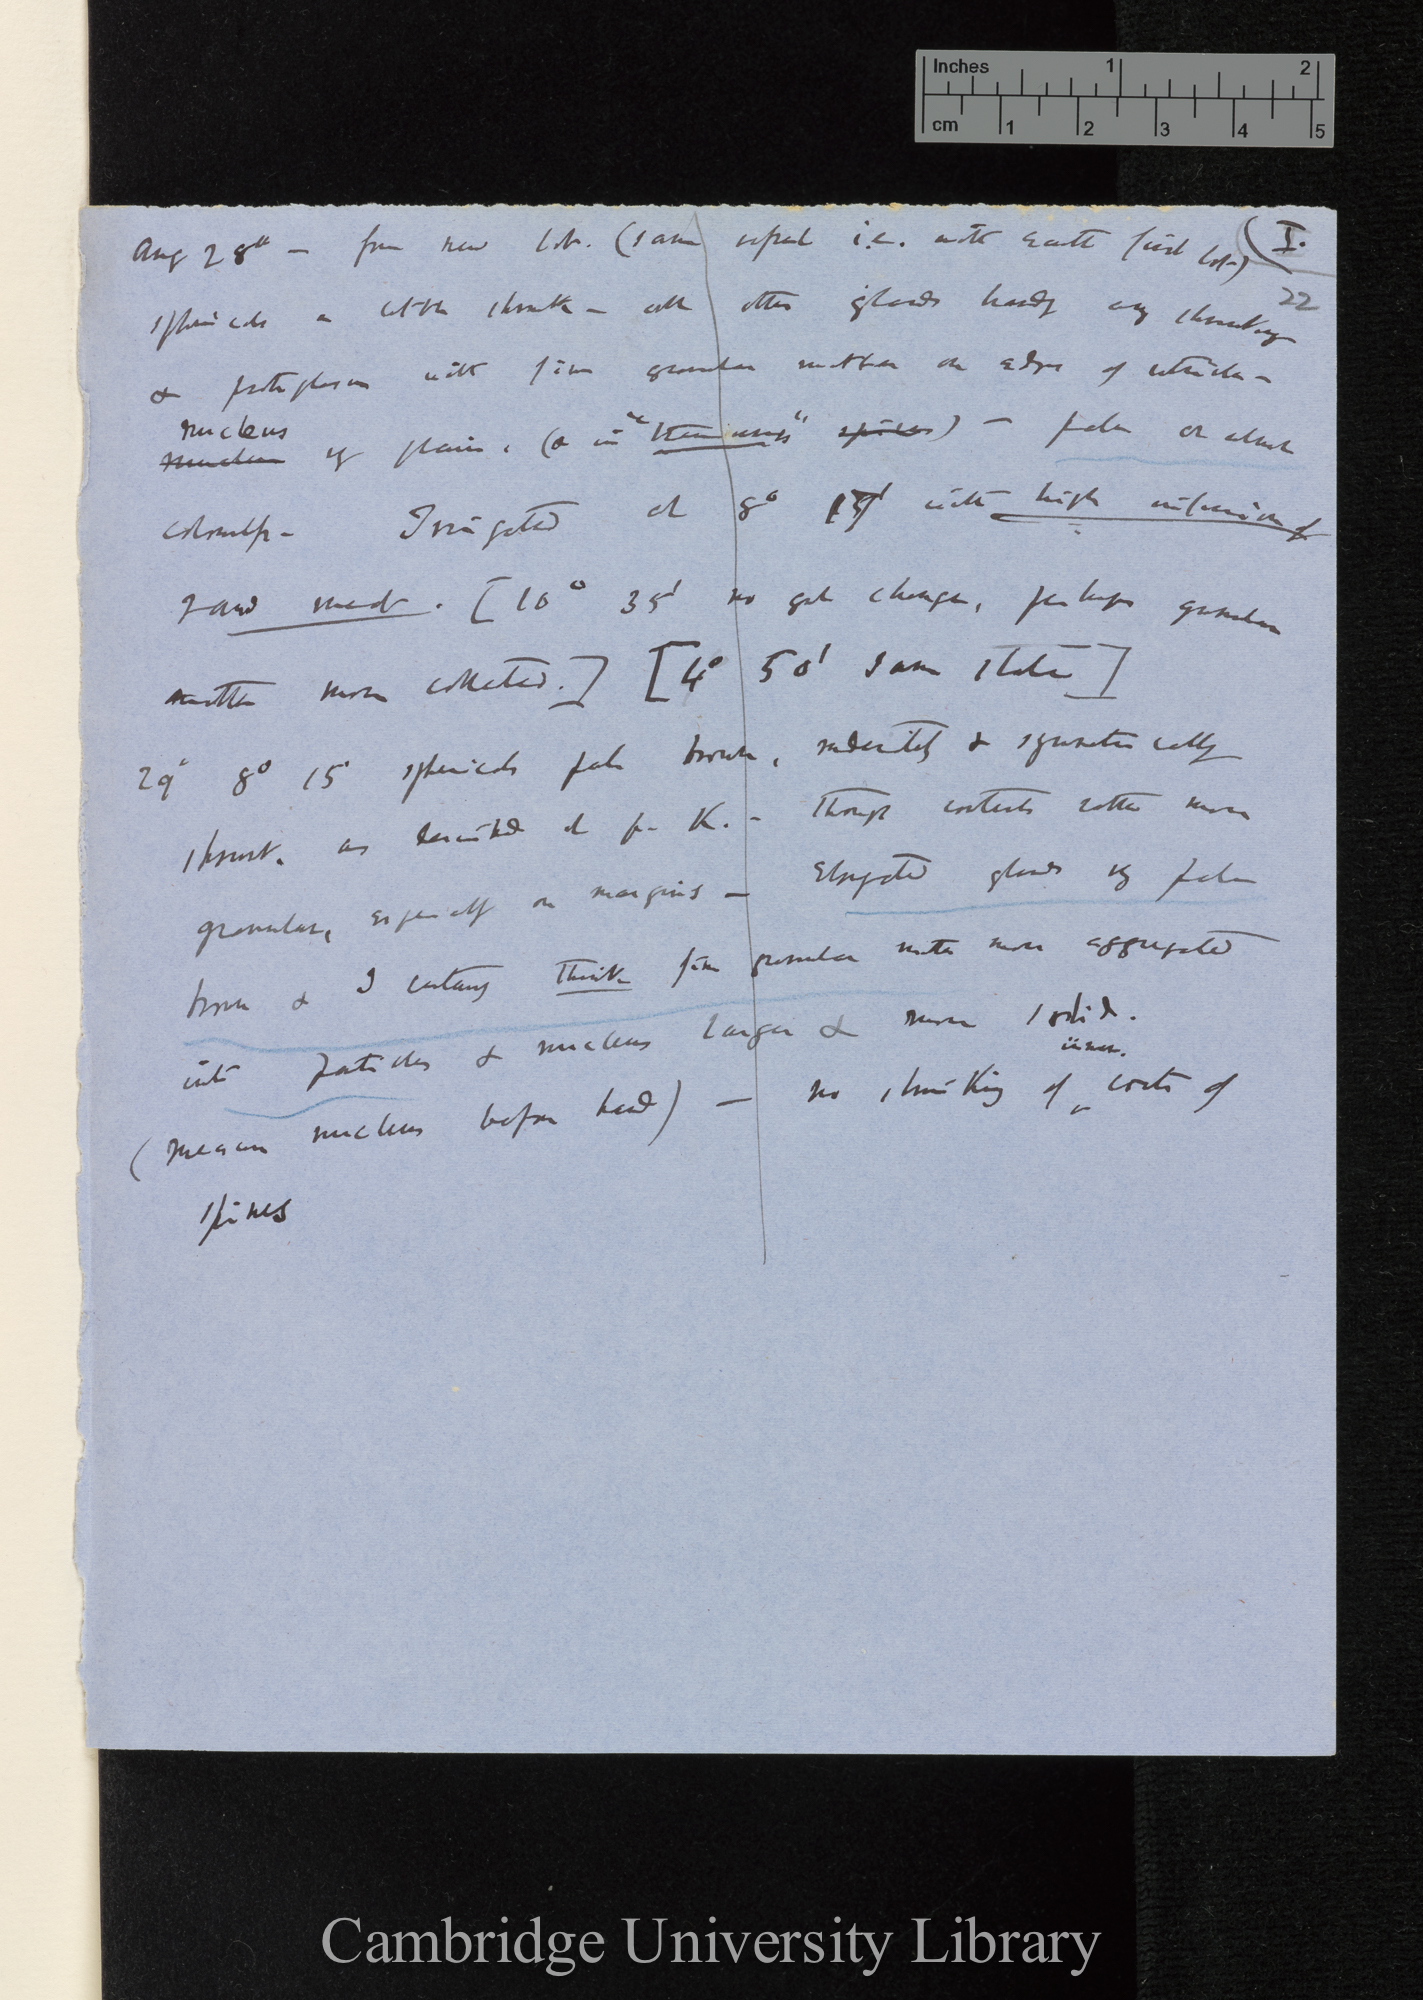 Inches 1 2
cm 1 2 3 4 5
(I.
22
Aug 28th — from new lot. (same i.e. with first lot)
sphericals a little shrunk — all other glands hardly any shrinking
& protoplasm with fine granular matter on edges of utricle —
nucleus v plain. (& in spines) — pale or almost
colourless — Irrigated at 8° 15' with high infusion of
raw meat. [10° 35' no gt change, perhaps granular
matter more collected.] [4° 50' same state]
29' 8° 15' sphericals pale brown, & symmetrically
shrunk, as described at p. K. — though contents rather more
granular, especially on margins — Elongated glands vy pale
brown & I certainly think fine granular matter more aggregated
into particles & nucleus larger & more solid.
(measure nucleus before hand) — no shrinking of inner. coats of
spines
Cambridge University Library